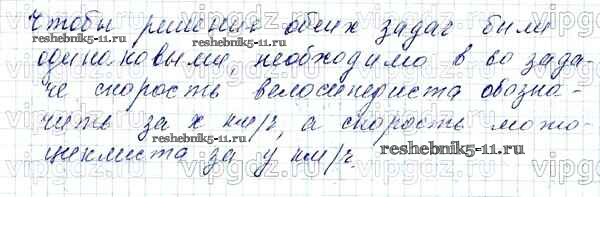 Чтобы решения обеих задач были
одинаковыми, необходимо в во зада-
че скорость велосипедиста обозна-
чить за х км/ч, а скорость мото-
циклиста за у км/ч.
reshebnik5-11.ru
reshebnik5-11.ru
reshebnik5-11.ru